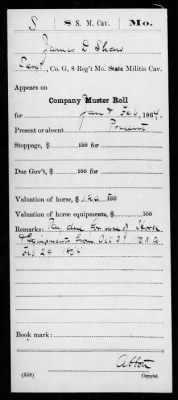 S 8 S. M. Cav. Mo.
James D Shaw
Co. G, 8 Reg't Mo. State Militia Cav.
Appears on
Company Muster Roll
for Jan & Feb, 1864.
Present or absent Present
Stoppage, $ 100 for
Due Gov't, $ 100 for
Valuation of horse, $ 120 100
Valuation of horse equipments, $ 100
Remarks: Pay due for use of Horse
& Equipments from Oct 31 1863 to
Feb 29 1864
Book mark:
Abbott
(358) Copyist.